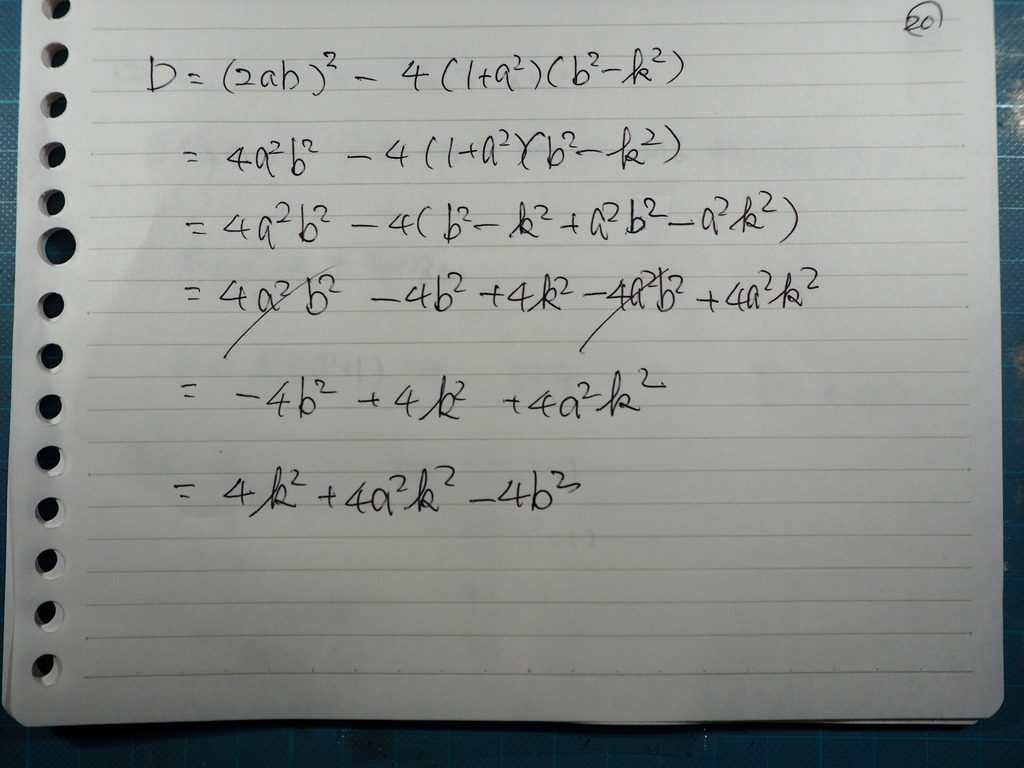 20
D = (2ab)² - 4(1+a²)(b²-k²)
= 4a²b² - 4(1+a²)(b²-k²)
= 4a²b² - 4(b²-k²+a²b²-a²k²)
= 4a²b² - 4b² + 4k² - 4a²b² + 4a²k²
= -4b² + 4k² + 4a²k²
= 4k² + 4a²k² - 4b²